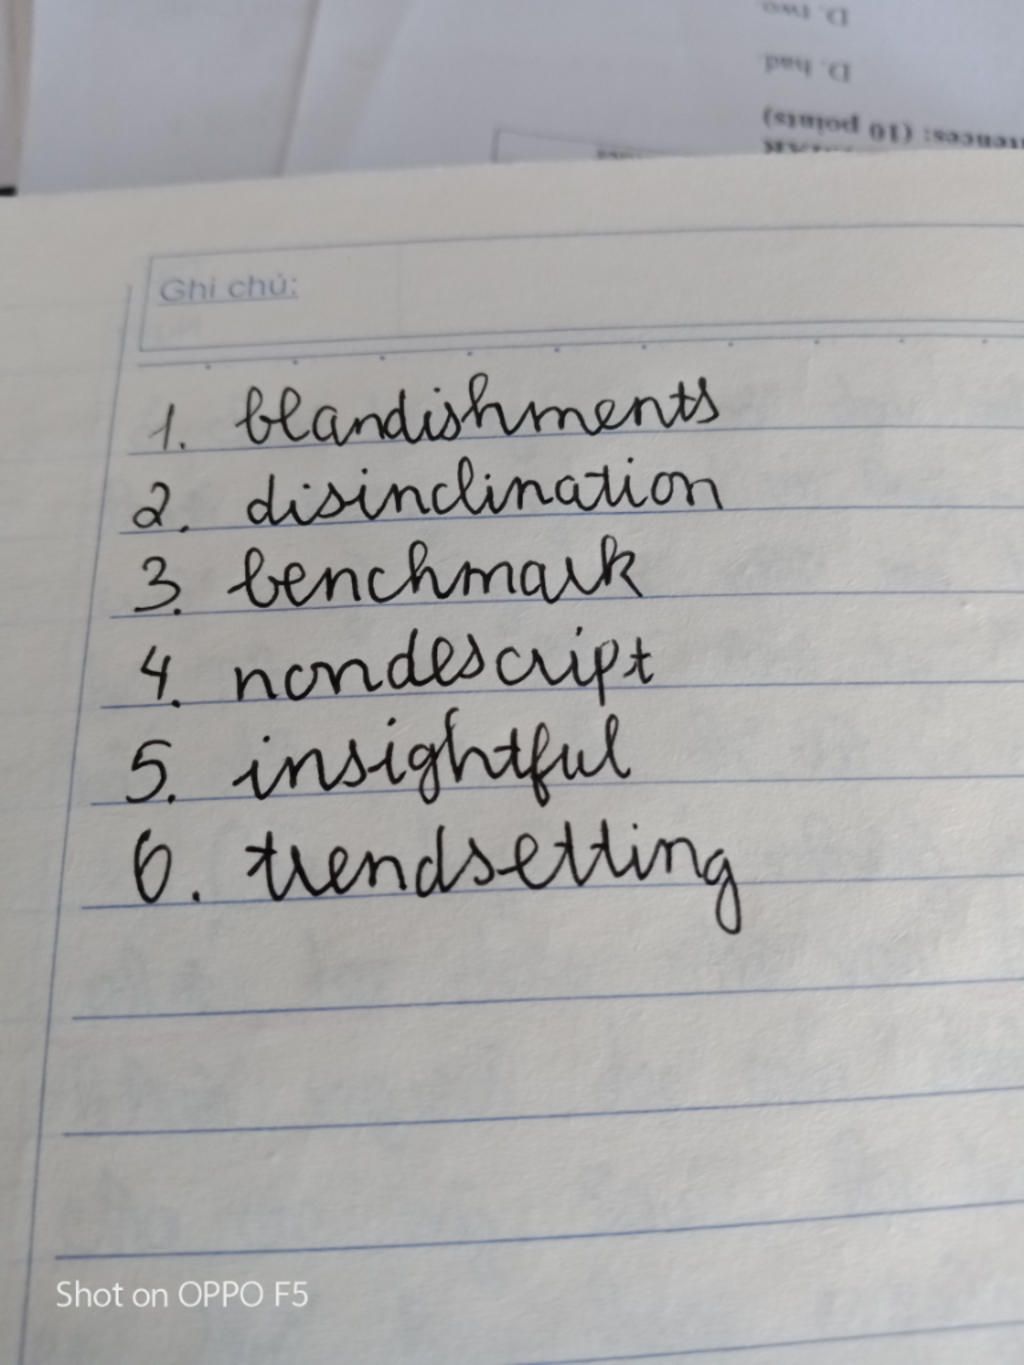 D. two
D. had
tences: (10 points)
Ghi chú:
1. blandishments
2. disinclination
3. benchmark
4. nondescript
5. insightful
6. trendsetting
Shot on OPPO F5